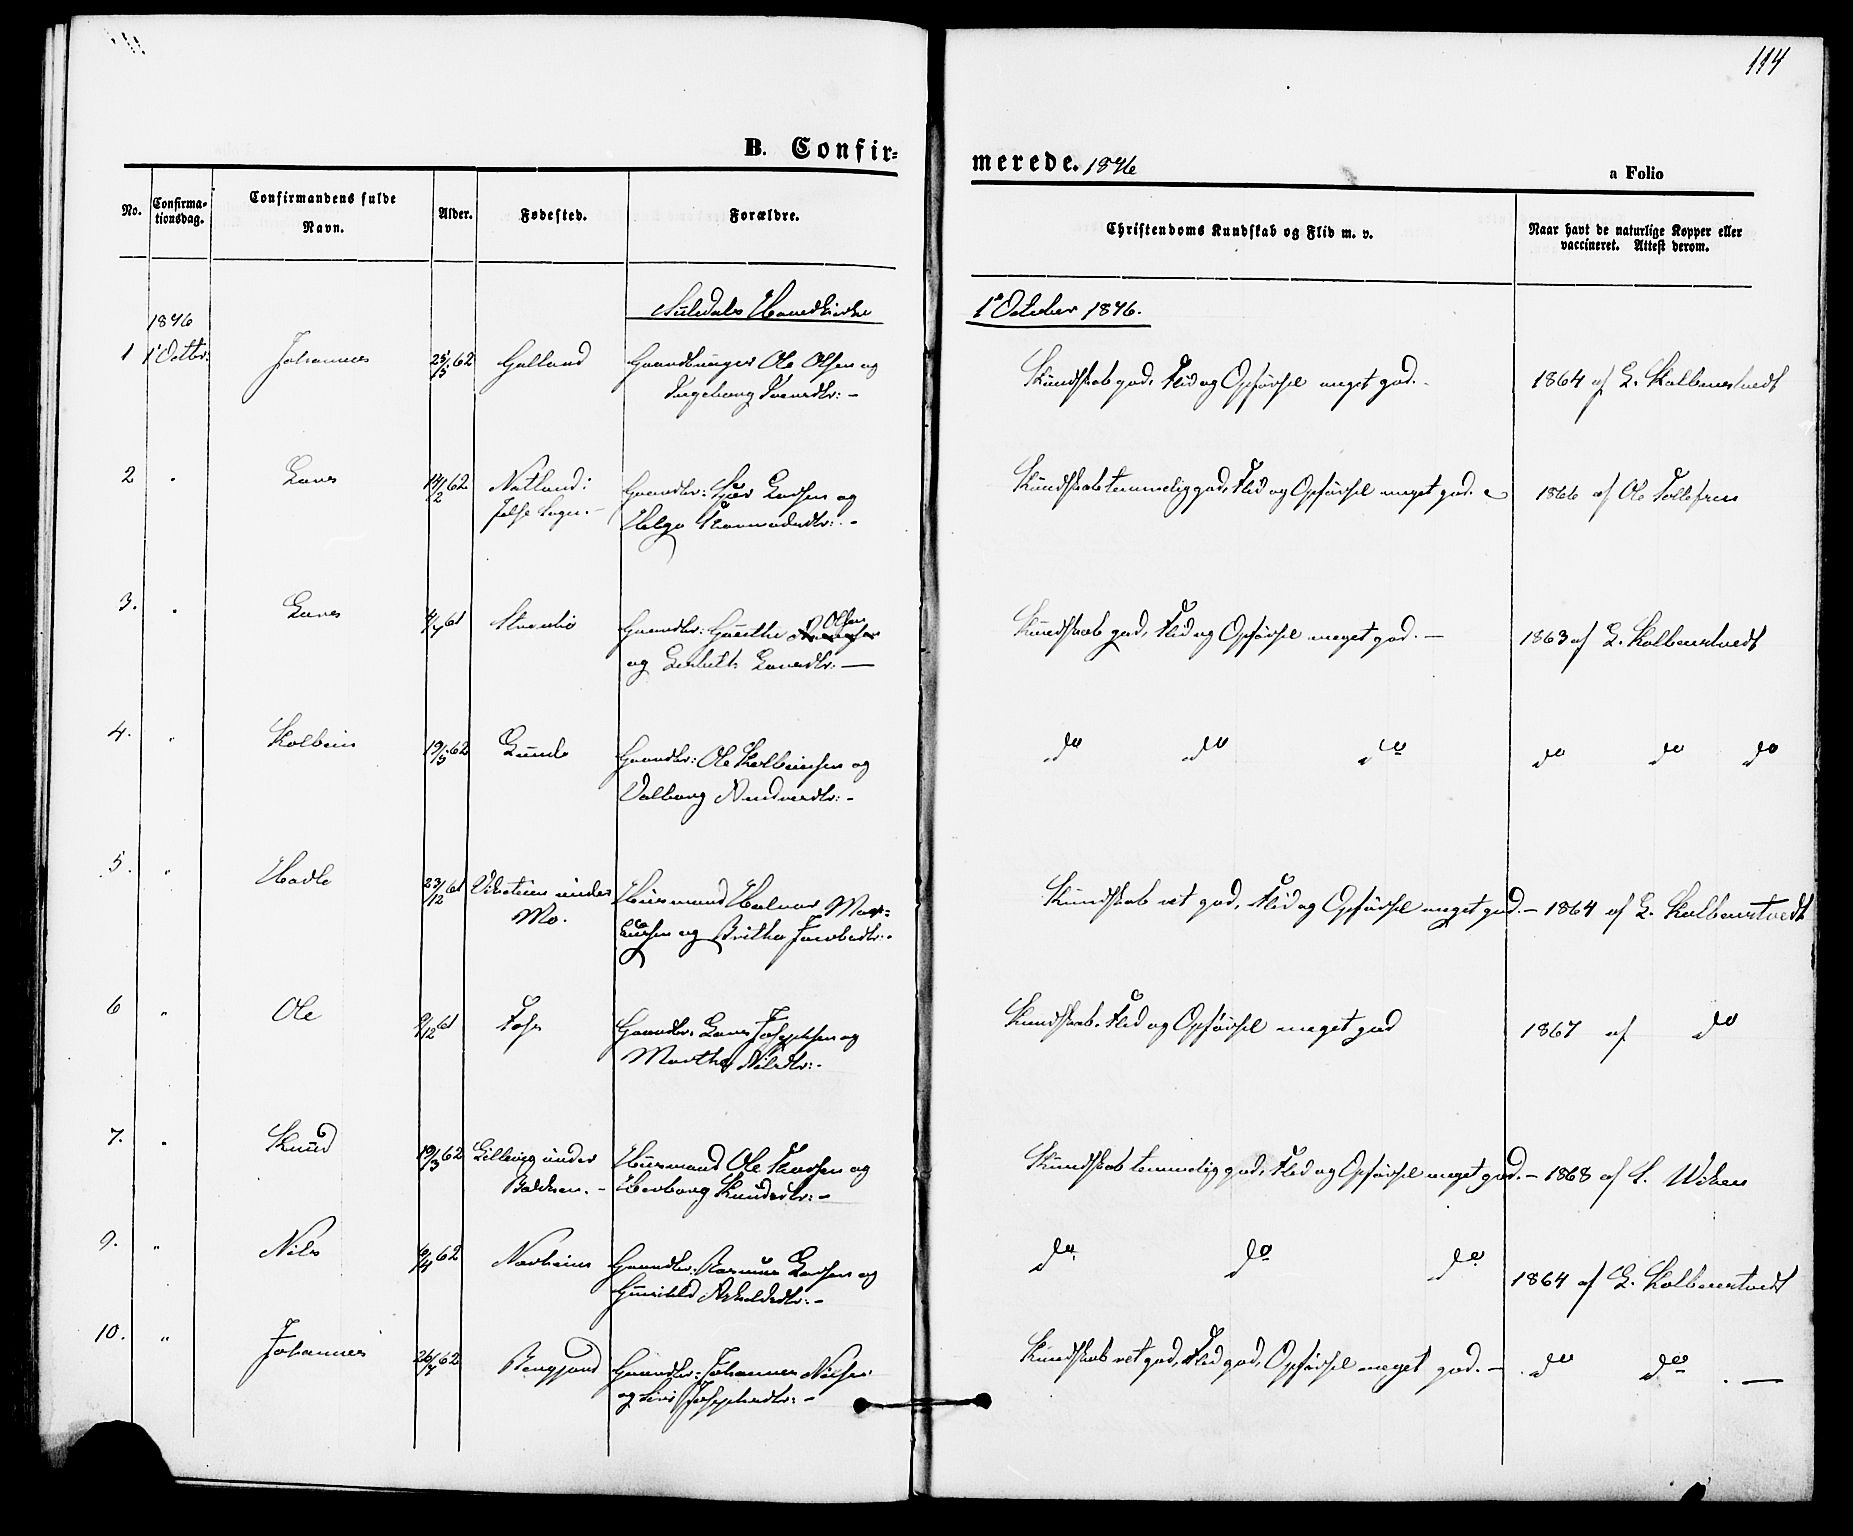 114
B. Confir=
merede. 1876
a Folio
No.
Confirma-
tionsdag.
Confirmandens fulde
Navn.
Alder.
Fødested.
Forældre.
Christendoms Kundskab og Flid m. v.
Naar havt de naturlige Kopper eller
vaccineret. Attest derom.
Suledals Hovedkirke
1' October 1876.
1876
1 1' Octbr: Johannes 25/5 62 Gaardbruger Ole Olsen og
Ingeborg
Kundskab god, Flid og Opførsel meget god. -
1864 af L. Kolbenstvedt
2 " Lars 14/2 62 Natland i
Gaardbr: Larsen og
Helga
Kundskab temmelig god, Flid og Opførsel meget god. -
1866 af Ole Tollefsen
3. " Lars 61
Gaardbr: Olsen
og Larsdtr: -
Kundskab god, Flid og Opførsel meget god. -
1863 af L. Kolbenstvedt
4. " Kolbein 19/5 62 Gaardbr: Ole Kolbeinsen og
Valborg
do do do
do do do
5. " Hadle 23/12 61 under
Mo.
Huusmand Halvor
og Britha Jacobsdtr: -
Kundskab ret god, Flid og Opførsel meget god. - 1864 af L. Kolbenstvedt
6 " Ole 9/12 61 Gaardbr: Lars Josephsen og
Martha Nilsdtr: -
Kundskab, Flid og Opførsel meget god
1867 af do
7. " Knud 19/3 62 Lillevig under
Bakken. -
Huusmand Ole Larsen og
Herborg Knudsdtr: -
Kundskab temmelig god, Flid og Opførsel meget god. - 1868 af
9. " Nils 62 Gaardbr: Rasmus Larsen og
Gunild
do do do
1864 af L. Kolbenstvedt
10. " Johannes 26/7 62 Gaardbr: Johannes Nilsen
og Siri Josephsdtr: -
Kundskab ret god, Flid god, Opførsel meget god. -
do do -